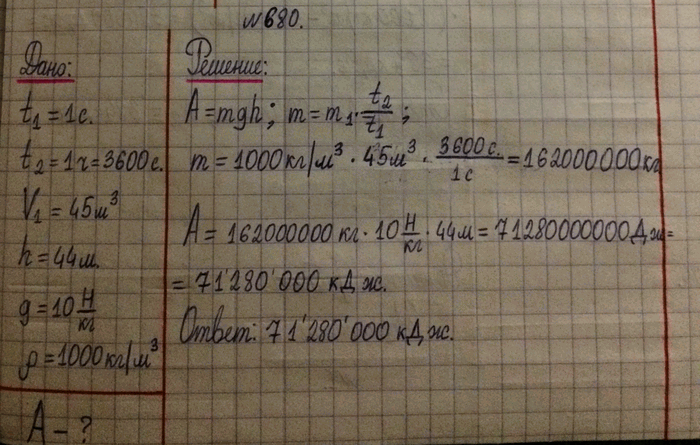 №680.
Дано:
t₁=1с.
t₂=1ч=3600с.
V₁=45м³
h=44м.
g=10 Н/кг
ρ=1000кг/м³
A-?
Решение:
A=mgh; m=m₁·t₂/t₁;
m=1000кг/м³·45м³·3600с./1с=162000000кг
A=162000000кг·10 Н/кг·44м=71280000000Дж=
=71'280'000кДж.
Ответ: 71'280'000кДж.